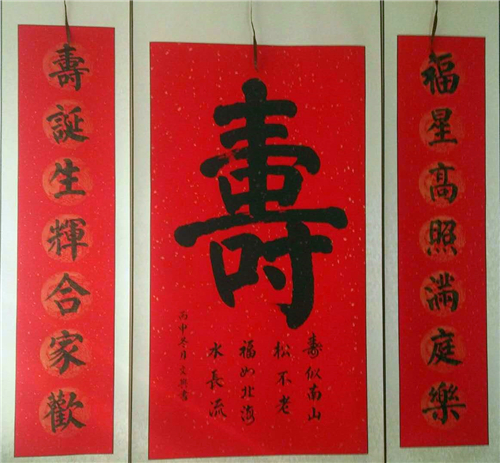 福星高照滿庭樂
壽
壽似南山
松不老
福如北海
水長流
丙申冬月文興書
壽誕生輝合家歡